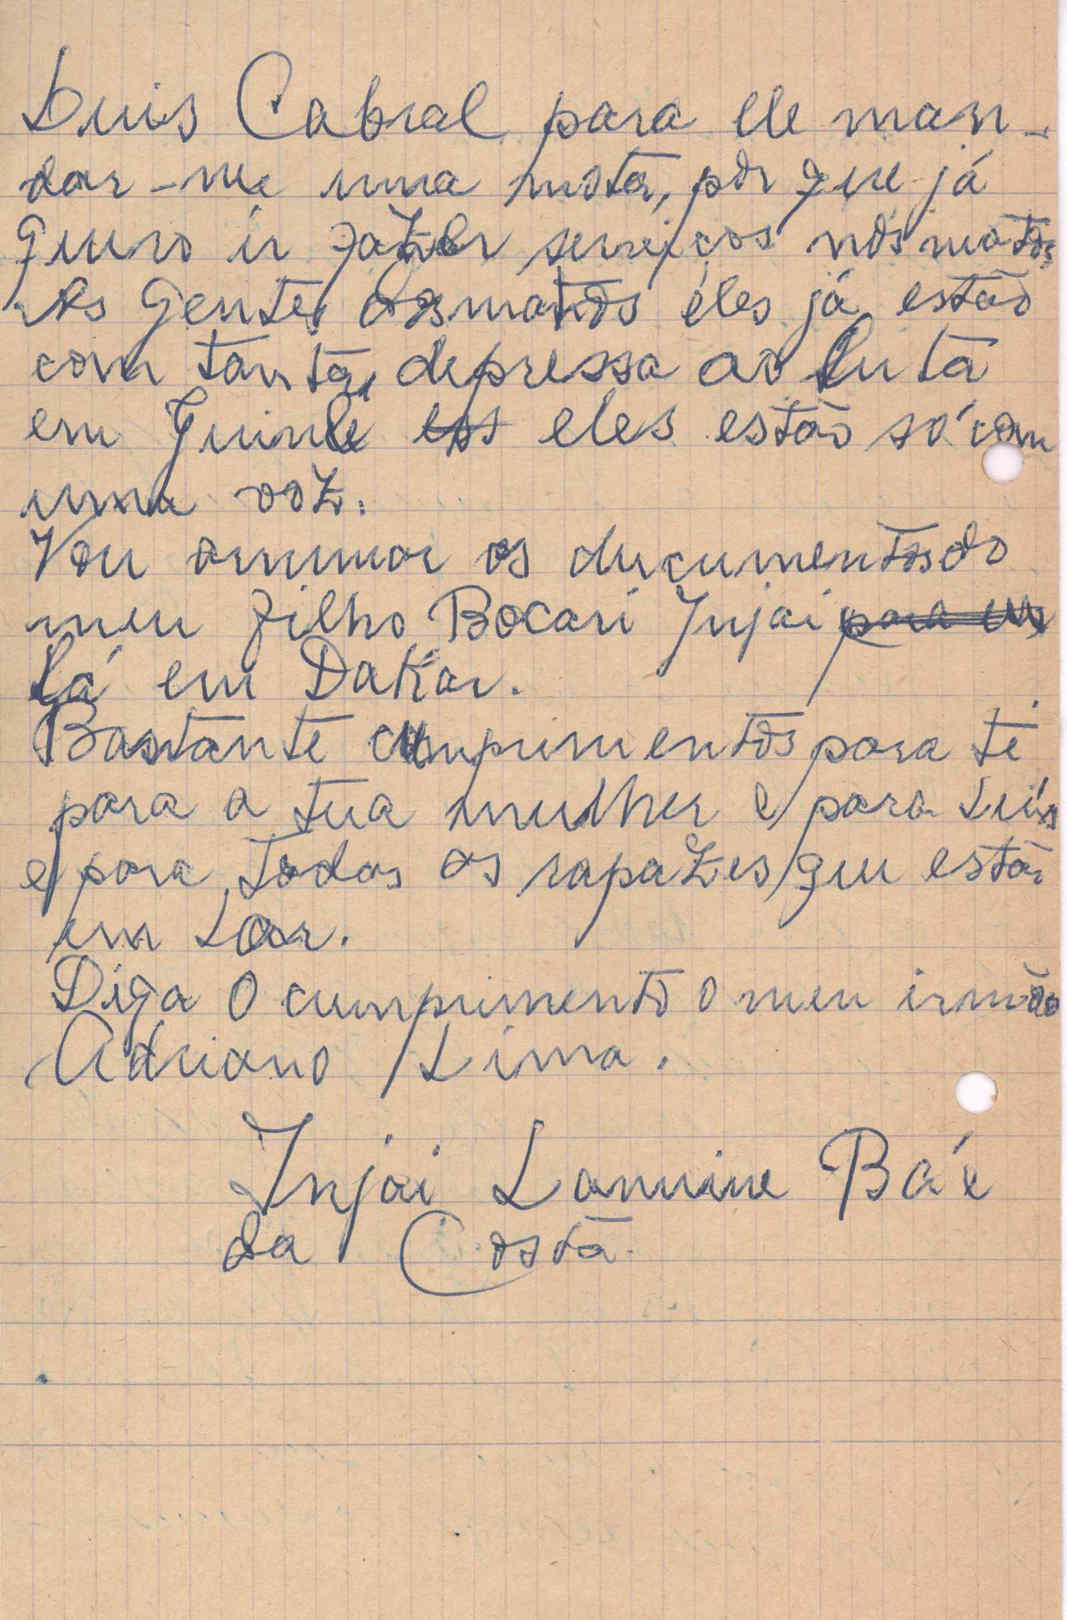 Luis Cabral para ele man-
dar-me uma nota, por que já
quero ir fazer serviços nos matos,
As gentes dos matos éles já estão
com tanta depressa ao luta
em Guiné eles estão só com
uma voz.
Vou arrumar os ducumentos do
meu filho Bocari Injai para em
lá em Dakar.
Bastante cumprimentos para ti
para a tua mulher e para Luís
e para todos os rapazes que estão
em Lar.
Diga o cumprimento o meu irmão
Adriano Lima.
Injai Lamine Bá e
da Costa